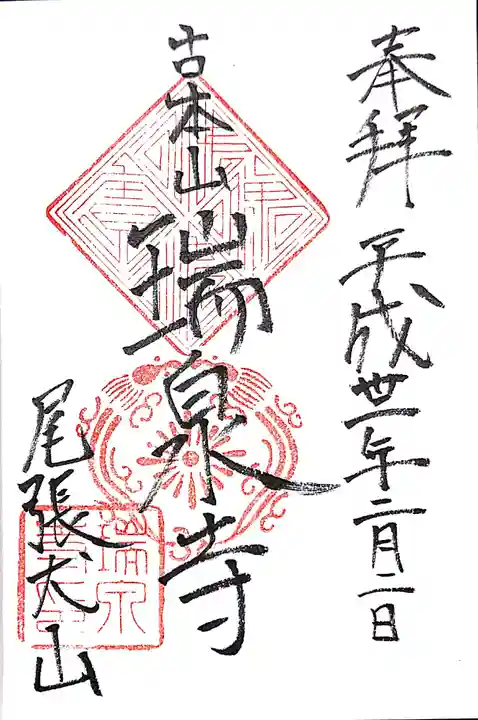 奉拝 平成卅一年二月二日
古本山
瑞泉寺
尾張犬山